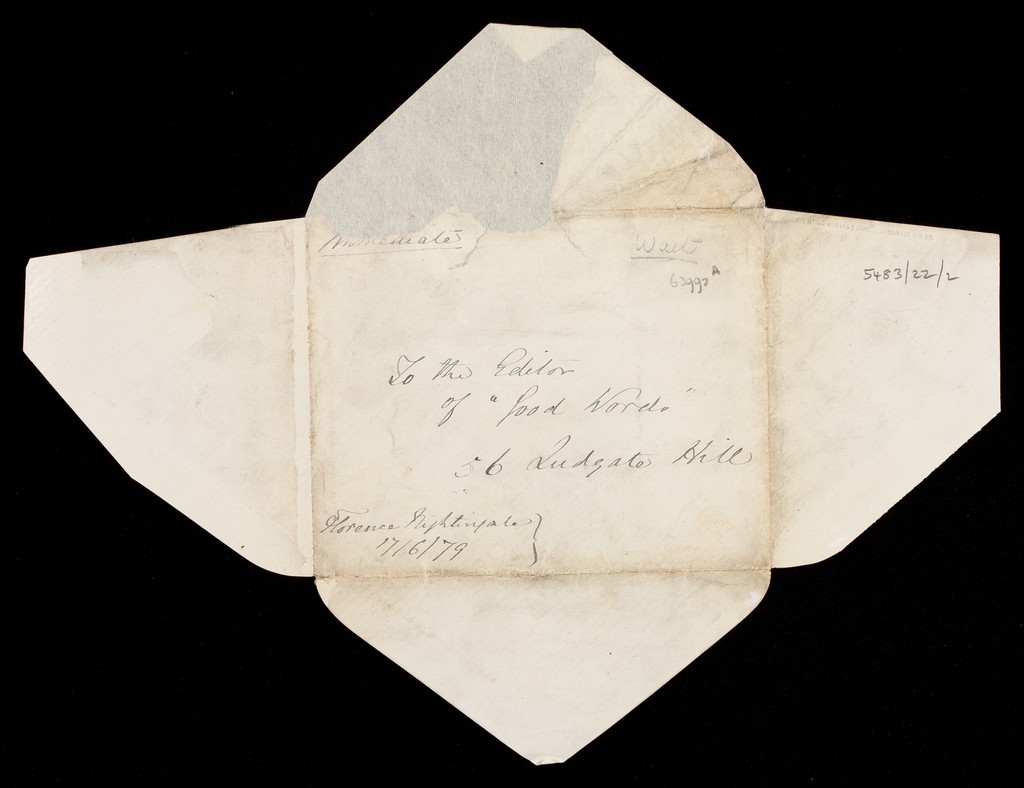 Immediate
Wait
63992 A
5483/22/2
To the Editor
of "Good Words"
56 Ludgate Hill
Florence Nightingale
17/6/79